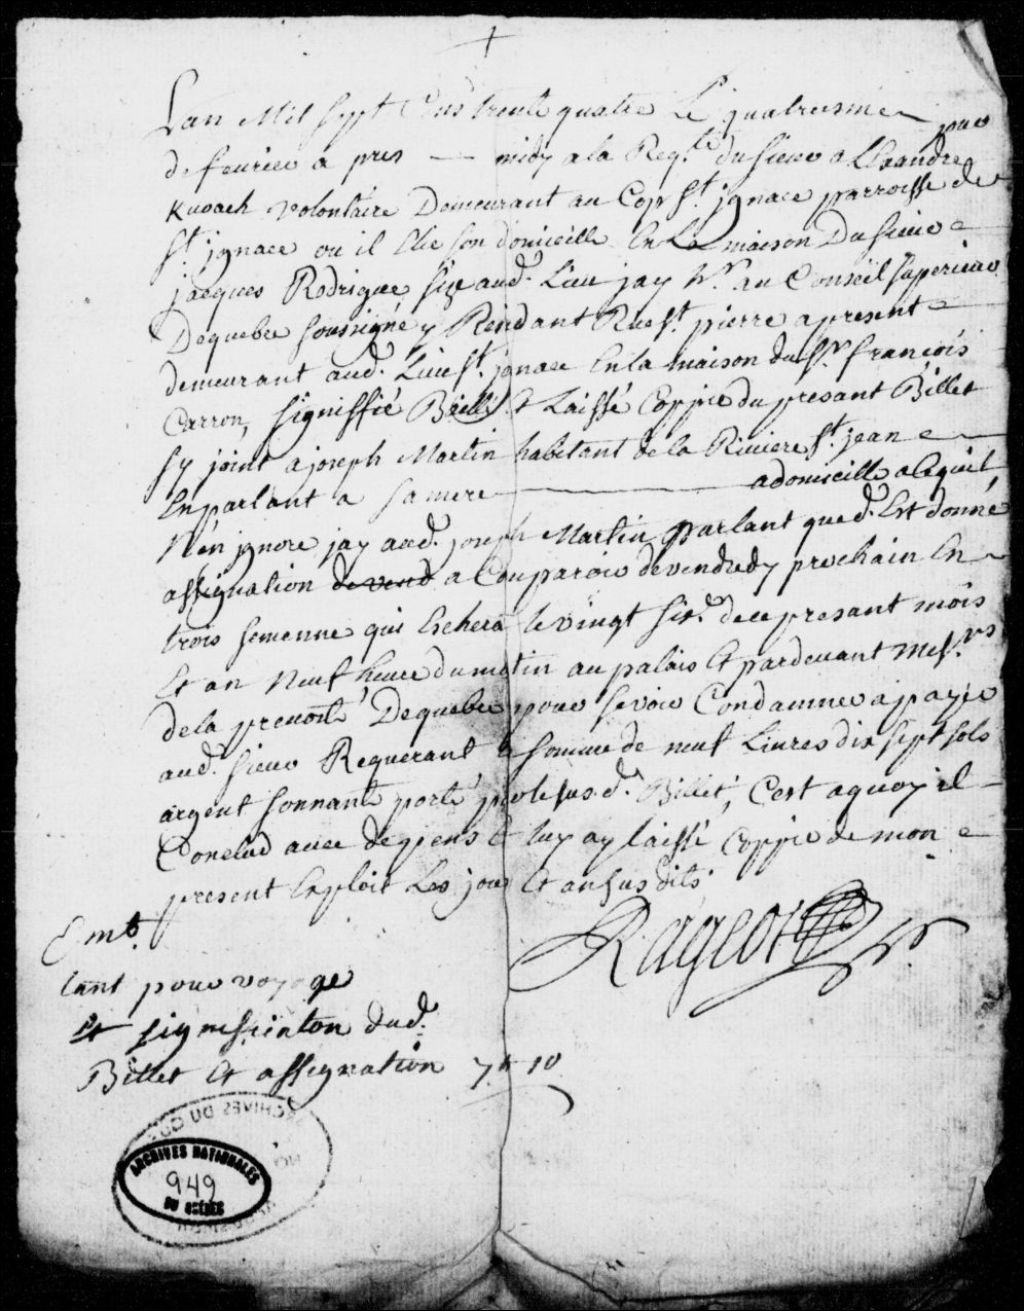 Lan Mil sept Cens trente quatre Le quatreisme jour
de feurier a pres — midy a la Reqte. du sieur aLexandre
Kuoach volontaire Demeurant au Cap St. jgnace parroisse de
St. jgnace ou il Elie son domicille En La maison Du sieur
jacques Rodrigue size aud. Lieu jay hr. au Conseil superieur
Dequebec soussigné y Residant Rue St. pierre apresent
demeurant aud. Lieu St. jgnace En la maison du Sr. françois
Carron, signiffié Baillé & Laissé Coppie du presant Billet
sy joint a joseph Martin habitant de la Riuiere St. jean
En parlant a sa mere — a domicille a ce quil
N'en jgnore jay aud. joseph Martin parlant que d. Est donné
assignation de vend a Comparoir devendredy prochain En
trois semenne qui Echera le vingt six. de ce presant mois
Et an Neuf heure du matin au palais Et pardeuant Messrs
de la preuosté Dequebec pour se voir Condamner a payer
aud. sieur Requerant la somme de neuf Liures dix sept sols
argent sonnant porté par le susd. Billet, C'est a quoy il
Conclud auec depens & luy ay laissé Coppie de mon
present Exploit Les jour Et an susdits.
Rageot hr.
Emt.
tant pour voyage
Et signification dud.
Billet Et assignation 7# 10
ARCHIVES NATIONALES
949
DU QUÉBEC